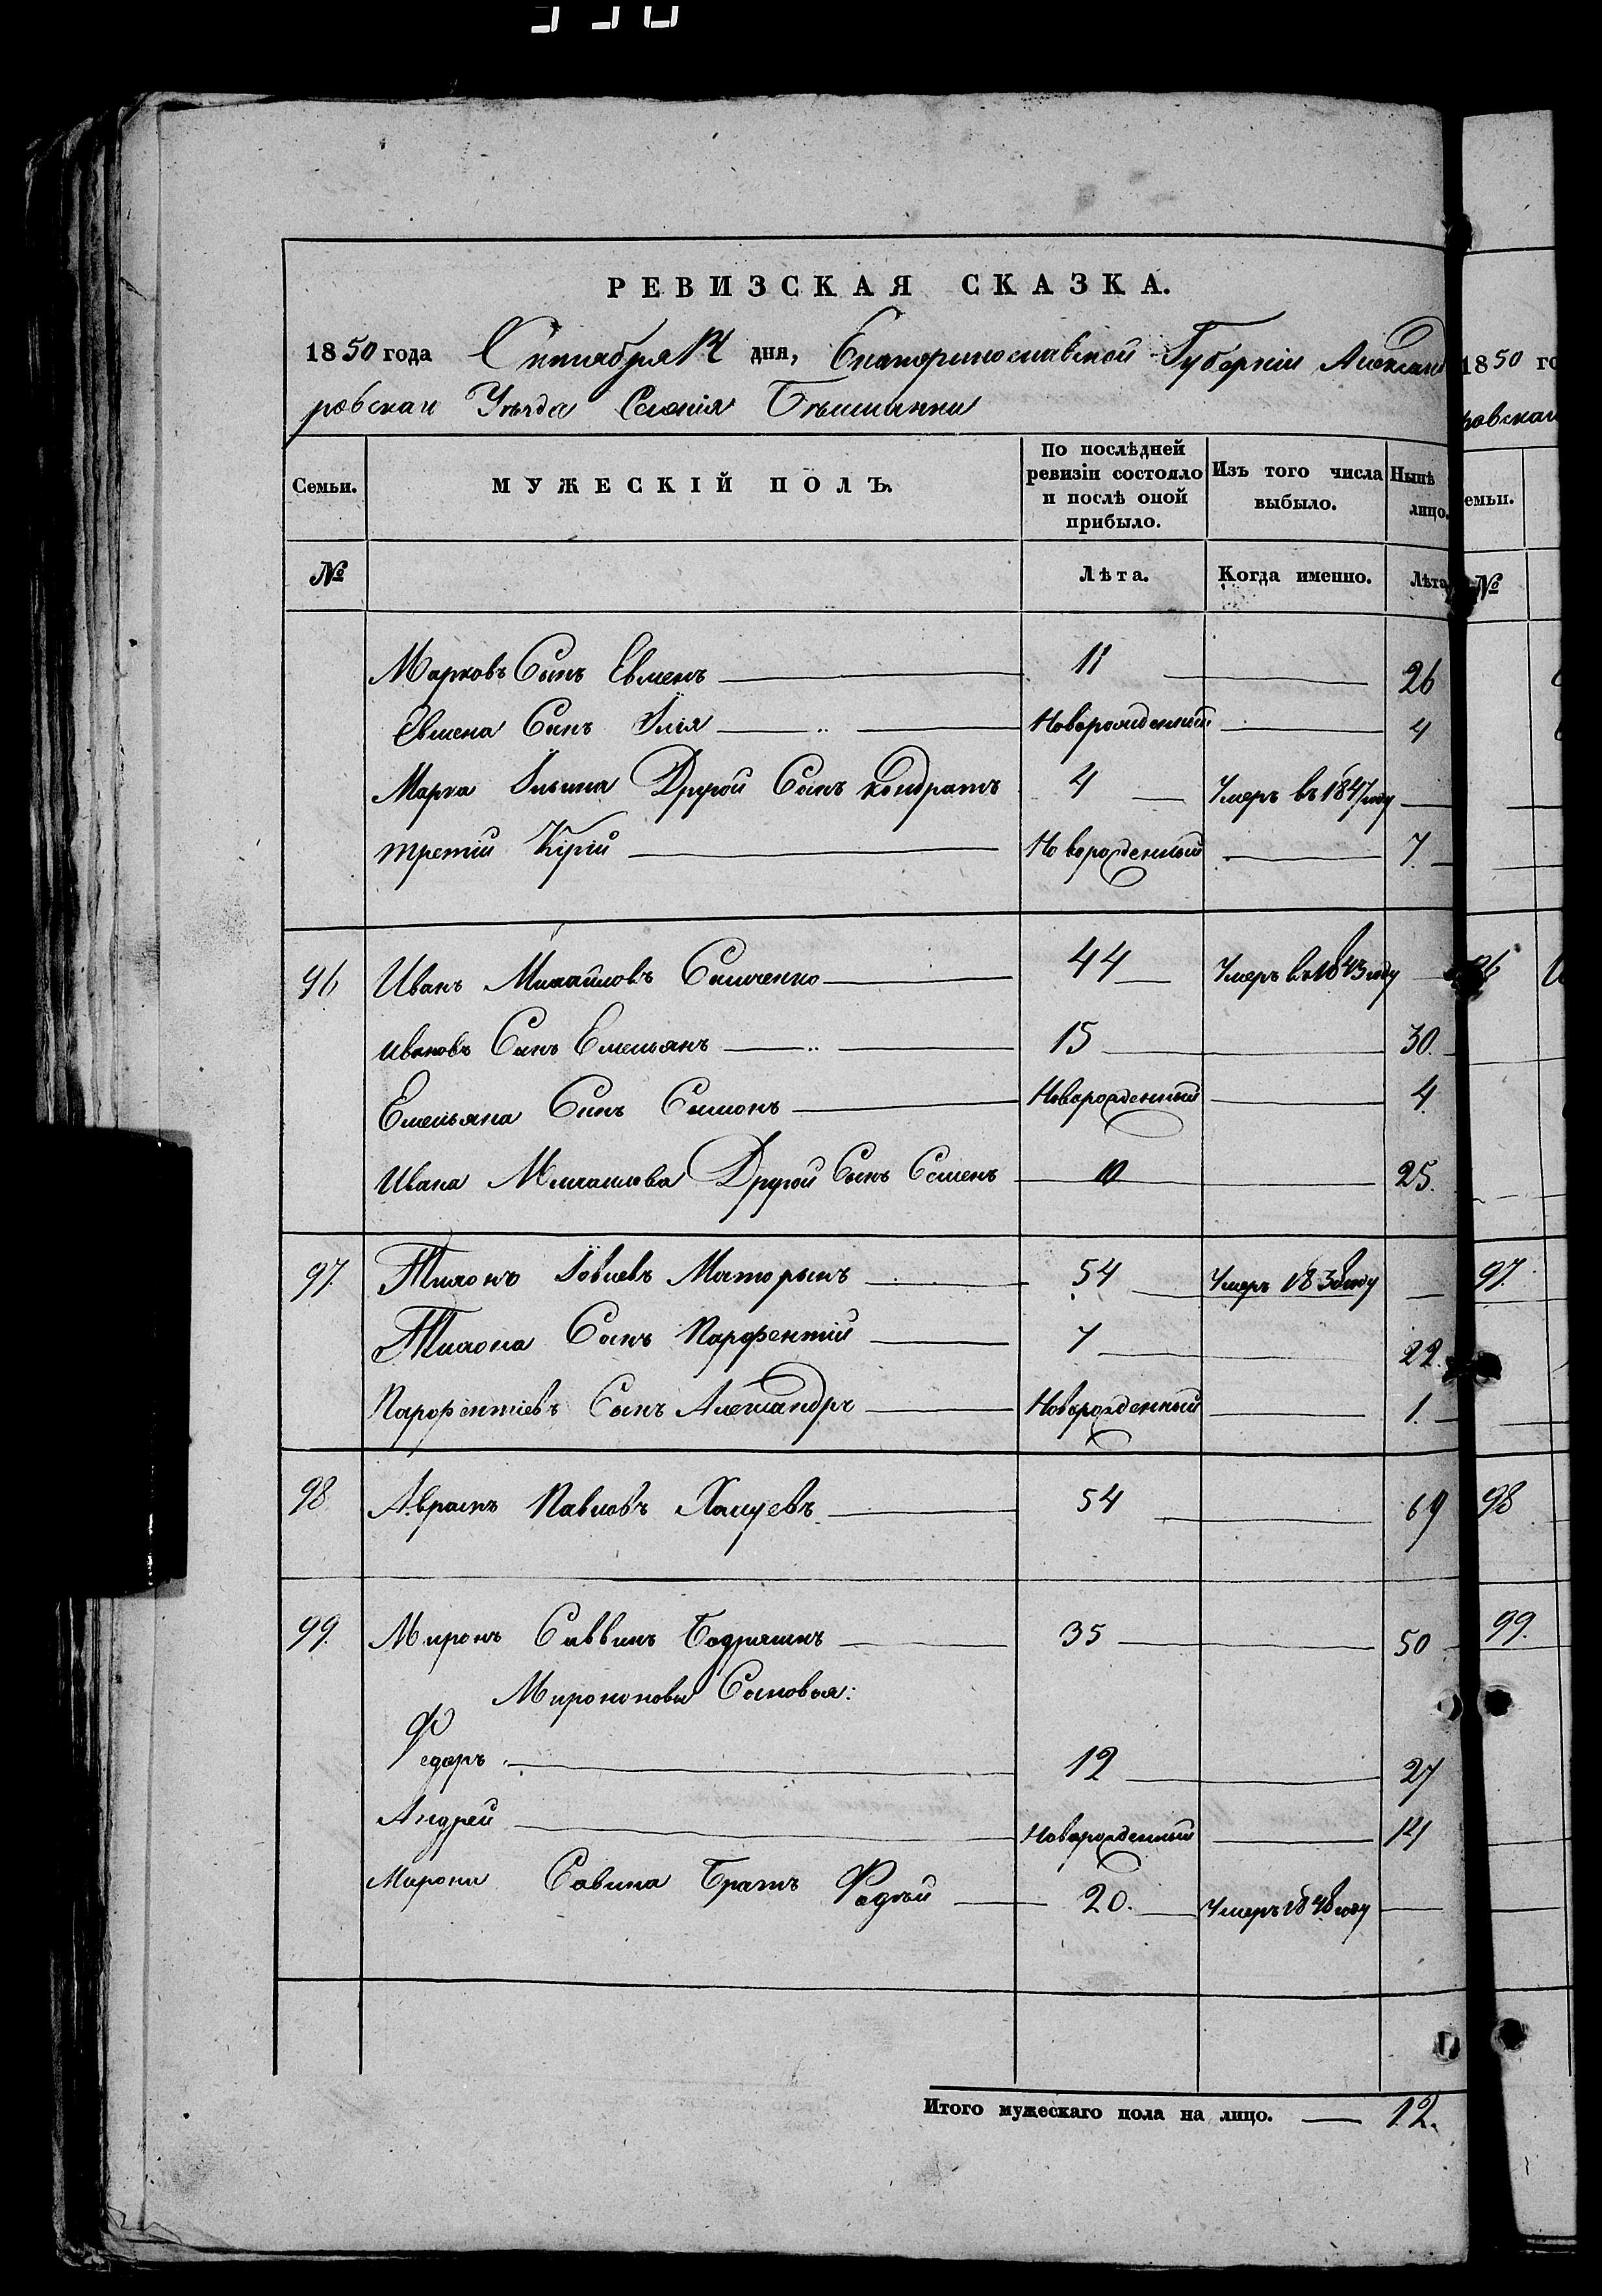 РЕВИЗСКАЯ СКАЗКА.
1850 года Сентября 14 дня, Екатеринославской Губерніи Александ
ровскаи Уѣзда Селенія Бѣшинки
Семьи. МУЖЕСКІЙ ПОЛЪ. По послѣдней ревизіи состояло и послѣ оной прибыло. Изъ того числа выбыло. Нынѣ лицо.
№ Лѣта. Когда именно. Лѣта
Марковъ Сынъ Евменъ 11 26
Евмена Сынъ Илія Новорожденный 4
Марка Ильина Другой Сынъ Кондратъ 4 Умеръ въ 1847 году
третій Кірій Новорожденный 7.
96 Иванъ Михайловъ Симченко 44 Умеръ въ 1843 году
Ивановъ Сынъ Емельянъ 15 30.
Емельяна Сынъ Симонъ Новорожденный 4.
Ивана Михаилова Другой Сынъ Семенъ 10 25.
97 Тихонъ Іовлевъ Маторынъ 54 Умеръ 1838 году
Тихона Сынъ Парфентій 7 22.
Парфентіевъ Сынъ Александръ Новорожденный 1.
98 Аврамъ Павловъ 54 69
99. Миронъ Саввинъ Бодряшнъ 35 50
Миро­новы Сыновья:
Федоръ 12 27
Андрей Новорожденный 14
Мирона Савина Братъ Фадѣй 20. Умеръ 1848 году
Итого мужескаго пола на лицо. 12.
1850 го
ровскаи
емьи.
№
96
97.
98
99.